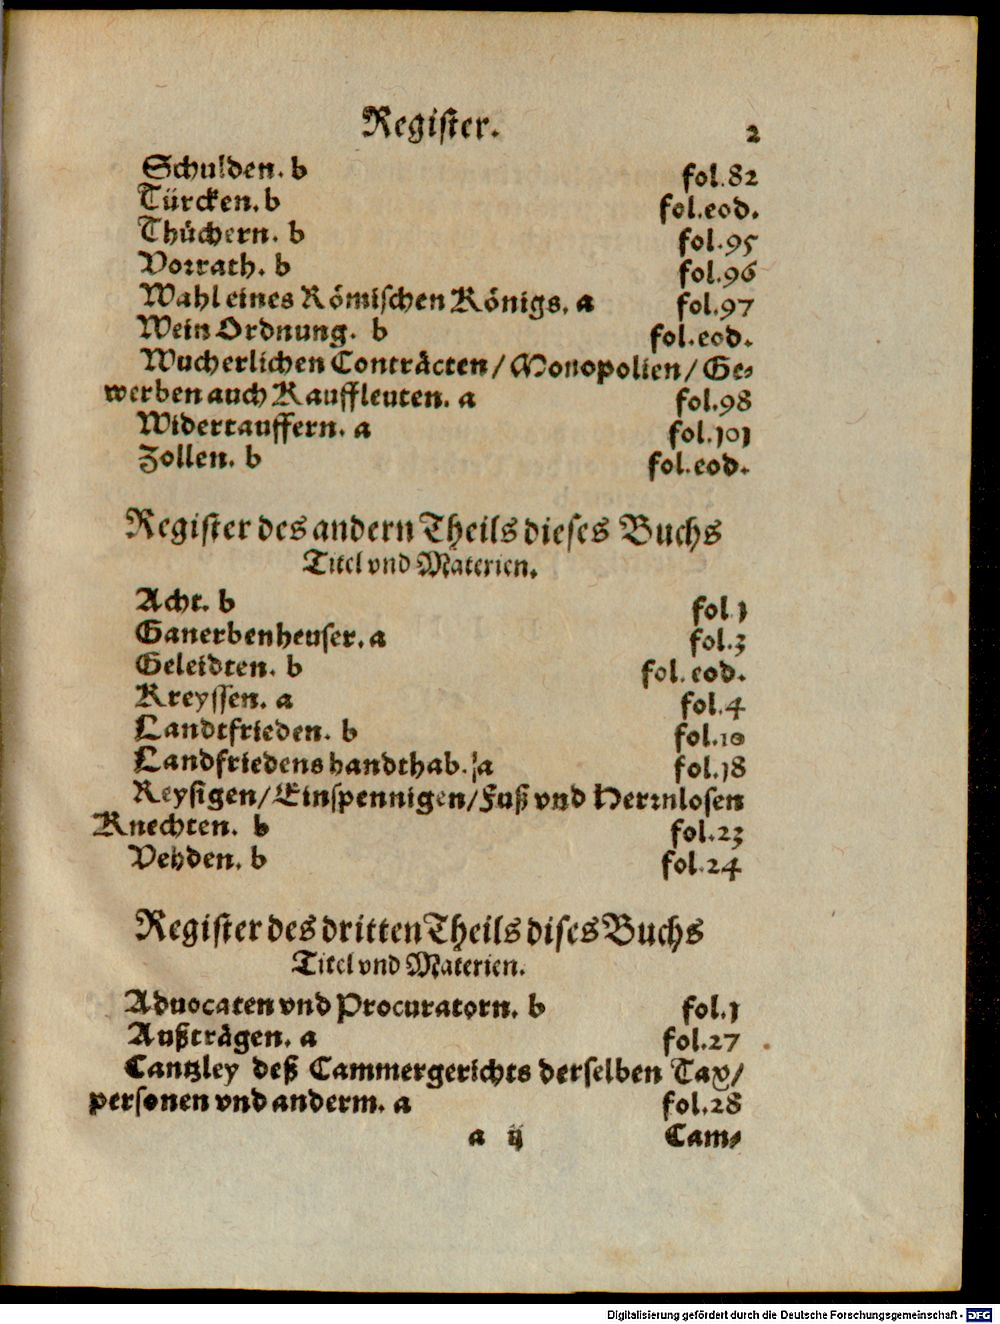 Register. 2
Schulden. b fol.82
Türcken. b fol.eod.
Thüchern. b fol.95
Vorrath. b fol.96
Wahl eines Römischen Königs. a fol.97
Wein Ordnung. b fol.eod.
Wucherlichen Conträcten/Monopolien/Ge-
werben auch Kauffleuten. a fol.98
Widertauffern. a fol.101
Zollen. b fol.eod.
Register des andern Theils dieses Buchs
Titel vnd Materien.
Acht. b fol.1
Ganerbenheuser. a fol.3
Geleidten. b fol.eod.
Kreyssen. a fol.4
Landtfrieden. b fol.10
Landfriedens handthab. a fol.18
Reysigen/Einspennigen/Fuß vnd Herrnlosen
Knechten. b fol.23
Vehden. b fol.24
Register des dritten Theils dises Buchs
Titel vnd Materien.
Aduocaten vnd Procuratorn. b fol.1
Außträgen. a fol.27
Cantzley deß Cammergerichts derselben Tax/
personen vnd anderm. a fol.28
a ij Cam-
Digitalisierung gefördert durch die Deutsche Forschungsgemeinschaft - DFG